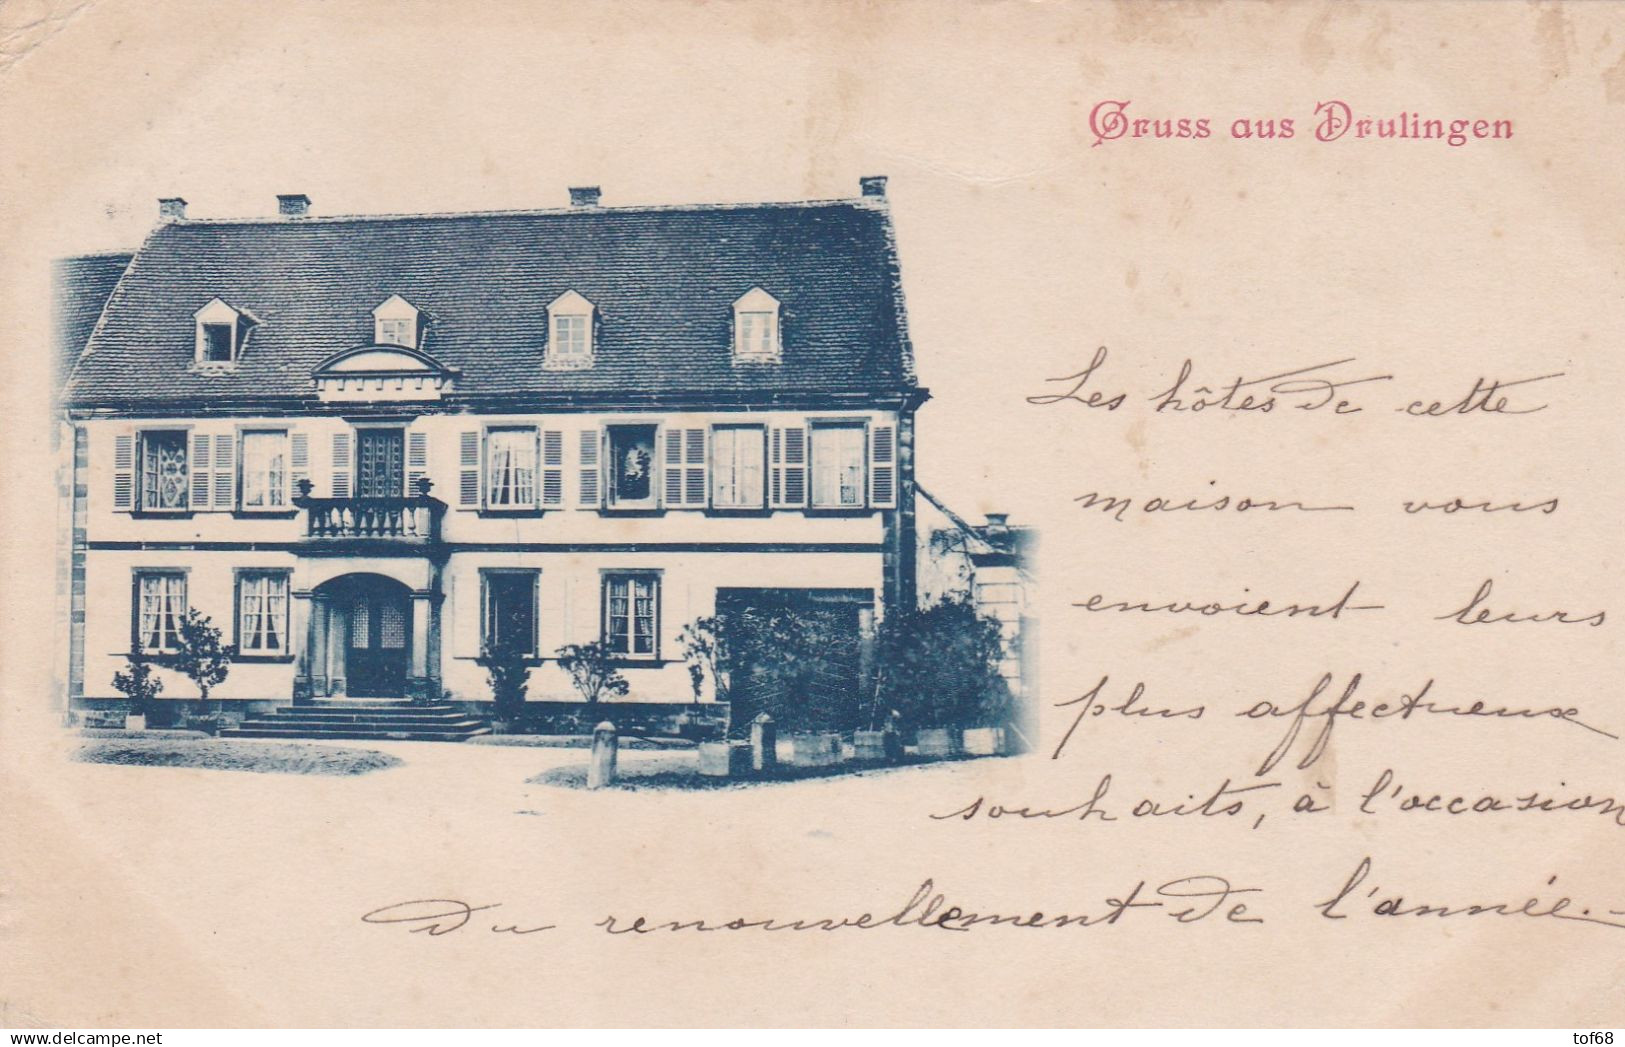 Gruss aus Drulingen
Les hôtes de cette
maison vous
envoient leurs
plus affectueux
souhaits, à l'occasion
Du renouvellement de l'année.-
www.delcampe.net
tof68